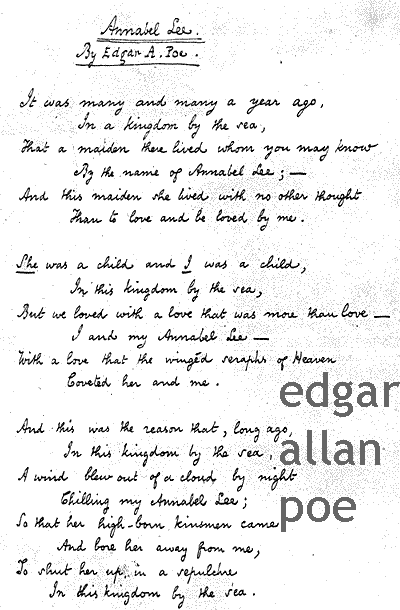 Annabel Lee.
By Edgar A. Poe.
It was many and many a year ago,
In a kingdom by the sea,
That a maiden there lived whom you may know
By the name of Annabel Lee; —
And this maiden she lived with no other thought
Than to love and be loved by me.
She was a child and I was a child,
In this kingdom by the sea,
But we loved with a love that was more than love —
I and my Annabel Lee —
With a love that the wingéd seraphs of Heaven
Coveted her and me.
And this was the reason that, long ago,
In this kingdom by the sea,
A wind blew out of a cloud by night
Chilling my Annabel Lee;
So that her high-born kinsmen came
And bore her away from me,
To shut her up in a sepulchre
In this kingdom by the sea.
edgar
allan
poe